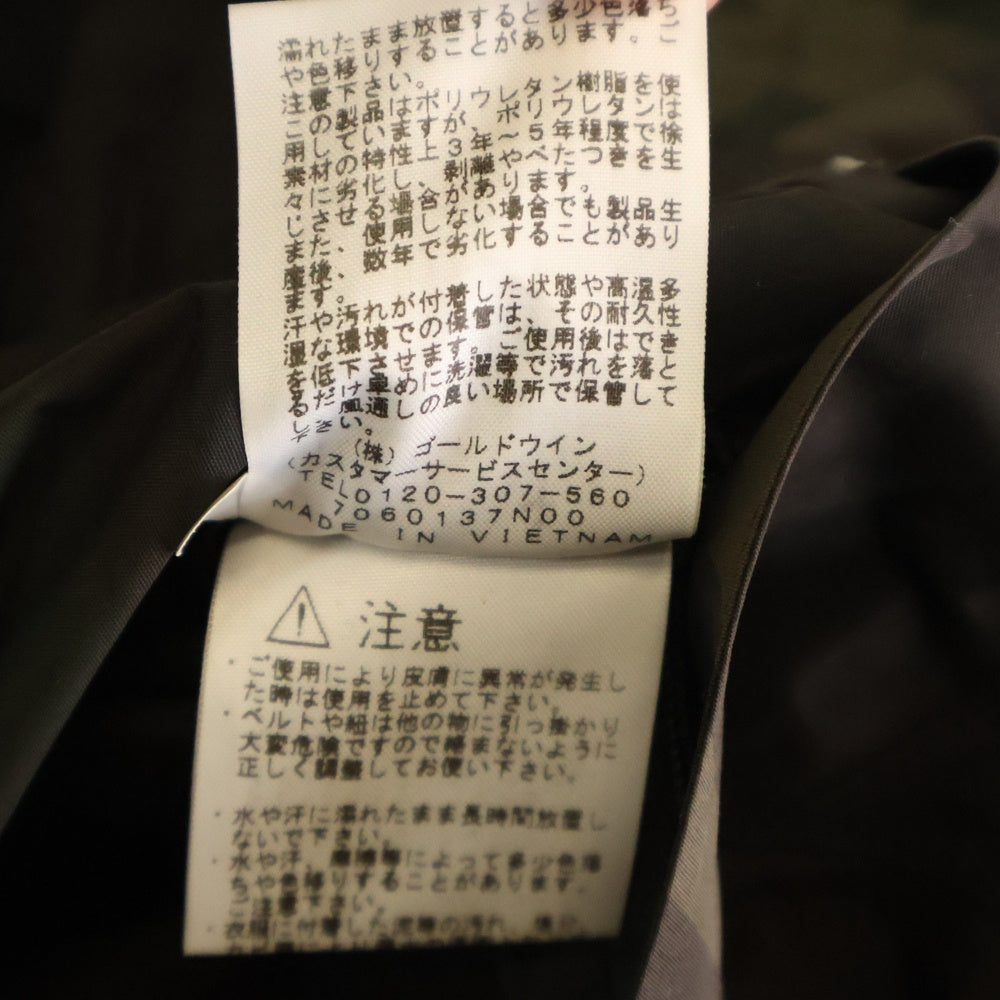 濡れたまま放置すると多少色落ち
や色移りすることがあります。ご
注意下さい。
この製品はポリウレタン樹脂を使
用しています。ポリウレタンは
素材の特性上、3~5年程度で徐
々に劣化し、剥離やべたつきを生
じさせる場合があります。
また、使用しない場合でも製品生
産後、数年で劣化することがあり
ます。
汗や汚れが付着した状態や高温多
湿な環境での保管は、その耐久性
を低下させます。ご使用後はでき
るだけ早めに洗濯等で汚れを落と
し、風通しの良い場所で保管して
ください。
(株)ゴールドウイン
(カスタマーサービスセンター)
TEL0120-307-560
7060137N00
MADE IN VIETNAM
注意
・ご使用により皮膚に異常が発生し
た時は使用を止めて下さい。
・ベルトや紐は他の物に引っ掛かり
大変危険ですので絡まないように
正しく調整してお使い下さい。
・水や汗に濡れたまま長時間放置し
ないで下さい。
・水や汗、摩擦等によって多少色落
ちや色移りすることがあります。
ご注意下さい。
・衣服に付着した汚れ、